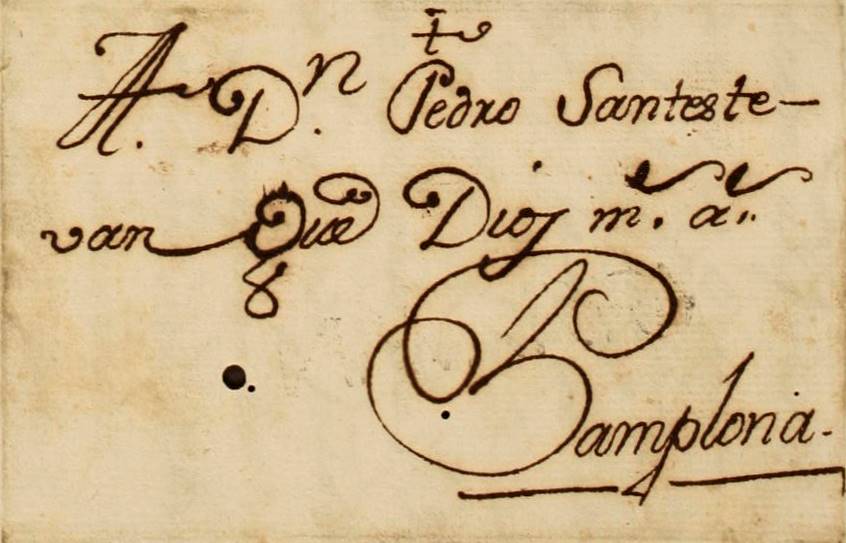 +
A. Dn. Pedro Santeste-
van Gue Dios m.s a.s
Pamplona.